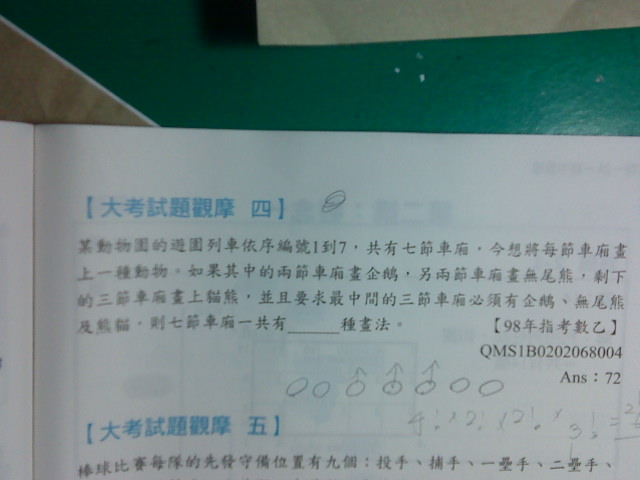 【大考試題觀摩 四】
某動物園的遊園列車依序編號1到7，共有七節車廂，今想將每節車廂畫
上一種動物。如果其中的兩節車廂畫企鵝，另兩節車廂畫無尾熊，剩下
的三節車廂畫上貓熊，並且要求最中間的三節車廂必須有企鵝、無尾熊
及熊貓，則七節車廂一共有______種畫法。 【98年指考數乙】
QMS1B0202068004
Ans：72
4! × 2! × 2! × 3! =
【大考試題觀摩 五】
棒球比賽每隊的先發守備位置有九個：投手、捕手、一壘手、二壘手、